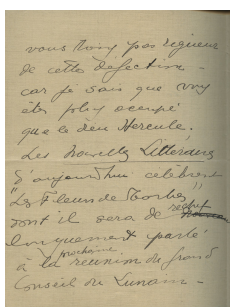 vous pas rigueur
de cette défection -
car je sais que vous
êtes plus occupé
que le dieu Hercule.
Les Nouvelles Littéraires
d'aujourd'hui célèbrent
"Les Fleurs de Tarbes"
dont il sera de
longuement parlé
à la prochaine réunion du Grand
Conseil du